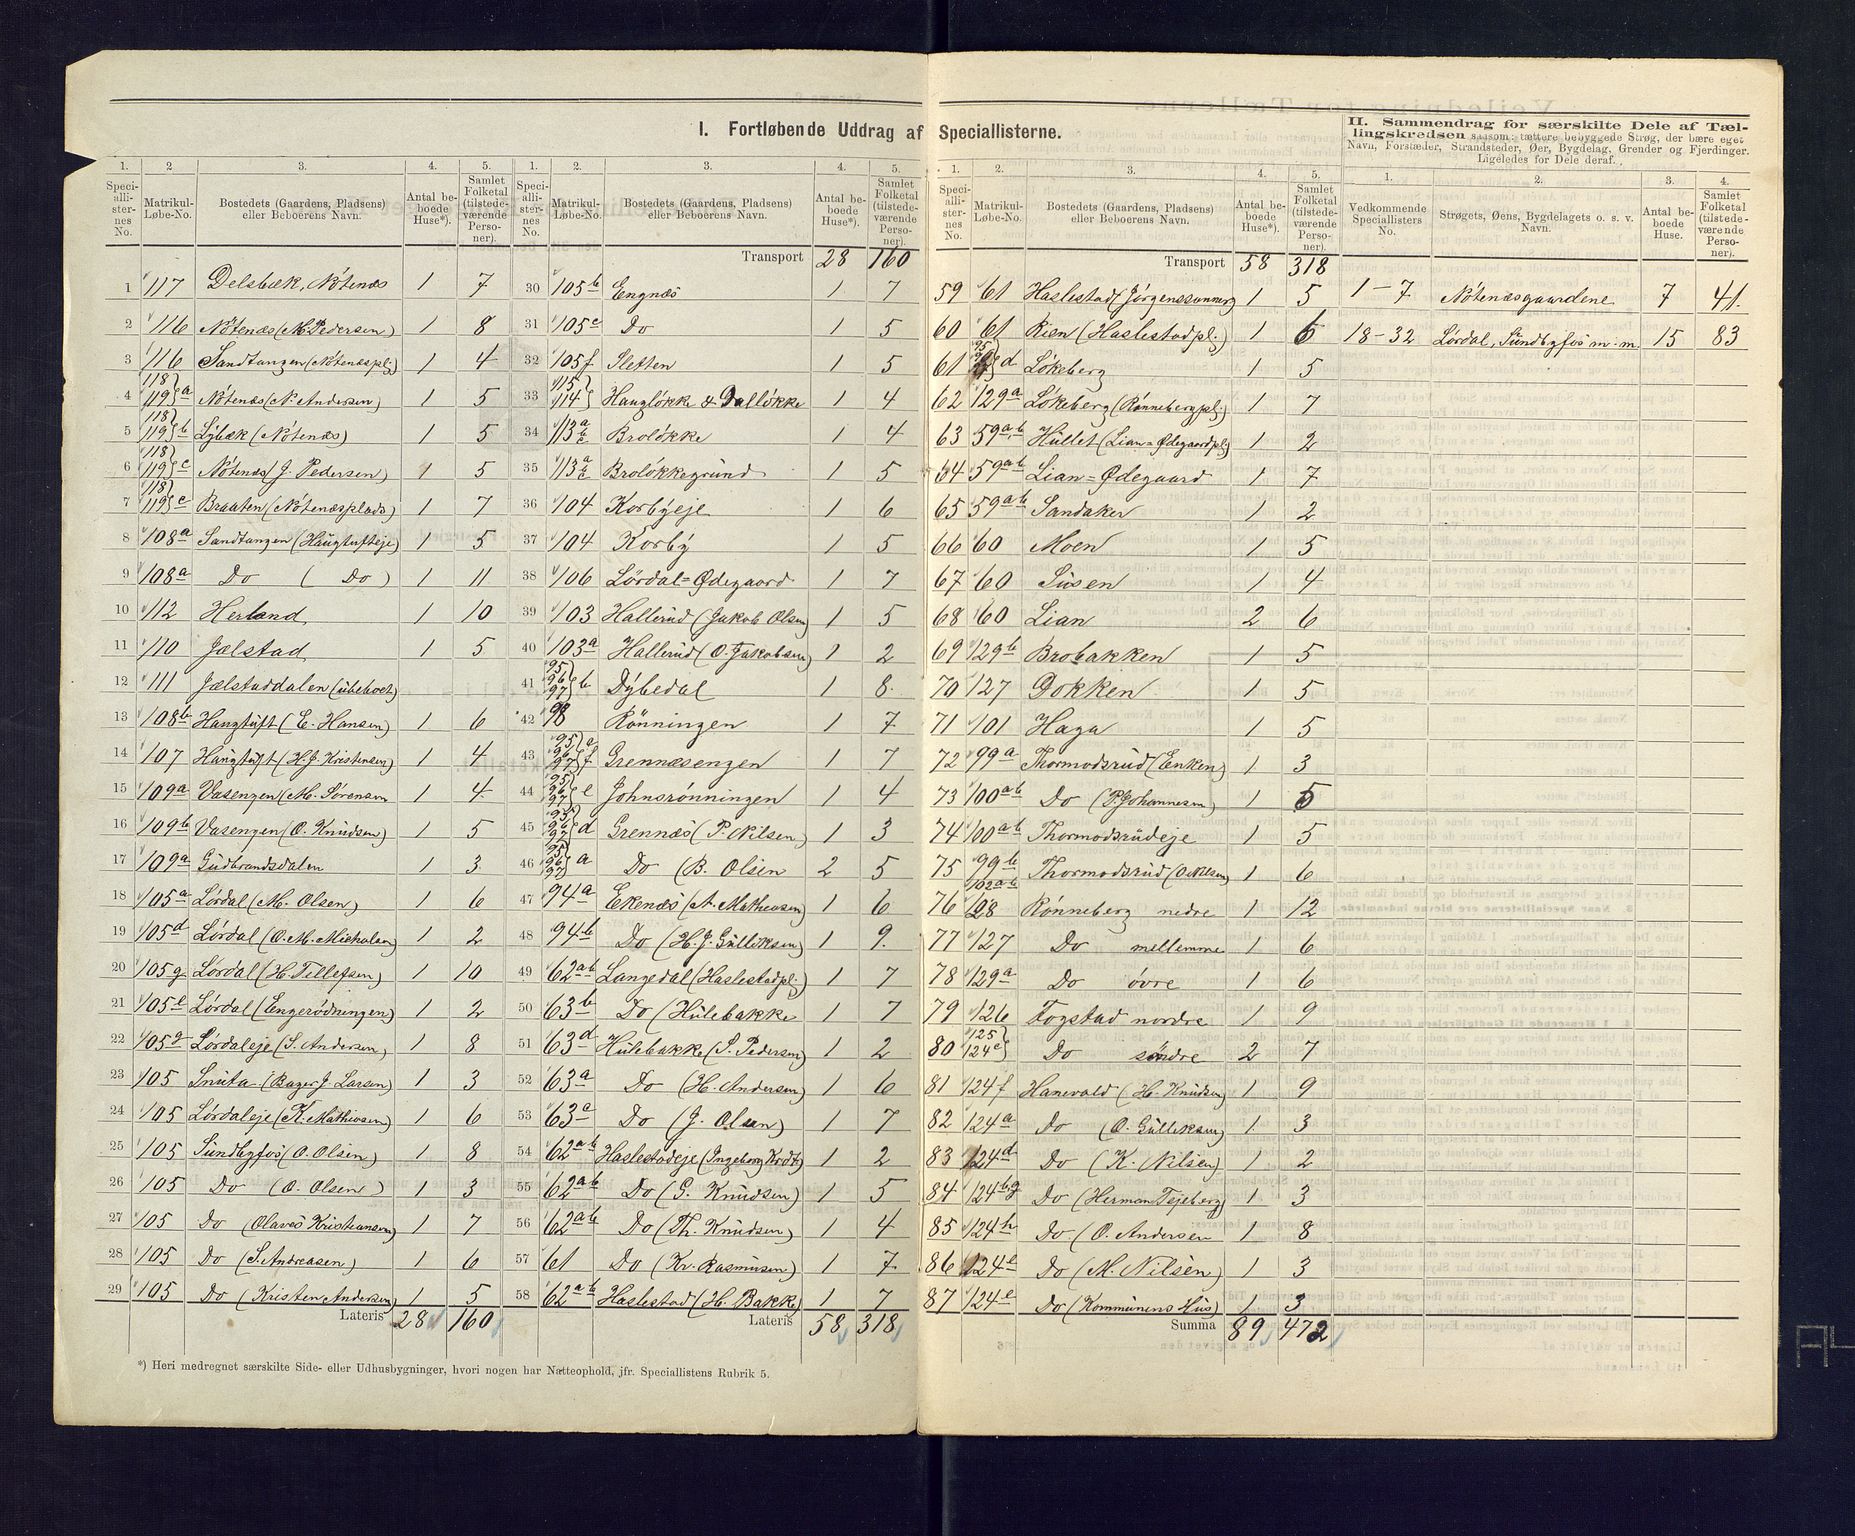 I. Fortløbende Uddrag af Speciallisterne.
II. Sammendrag for særskilte Dele af Tæl-
lingskredsen saasom: tættere bebyggede Strøg, der bære eget
Navn, Forstæder, Strandsteder, Øer, Bygdelag, Grender og Fjerdinger.
Ligeledes for Dele deraf.
1. 2 3. 4. 5.
Speciallisternes No. Matrikul-Løbe-No. Bostedets (Gaardens, Pladsens) eller Beboerens Navn. Antal beboede Huse*). Samlet Folketal (tilstedeværende Personer).
1 117 Delsbæk, Nötenæs 1 7
2 116 Nötenæs (M. Pedersen) 1 8
3 116 Sandtangen (Nötenæspl.) 1 4
4 118 119 a Nötenæs (N. Andersen) 1 5
5 118 119 b Lybæk (Nötenæs) 1 5
6 118 119 c Nötenæs (J. Pedersen) 1 5
7 118 119 c Braaten (Nötenæsplads) 1 7
8 108a Sandtangen (Haugtufteje) 1 5
9 108a Do (Do) 1 11
10 112 Herland 1 10
11 110 Jælstad 1 5
12 111 Jælstaddalen (ubeboet)
13 108b Haugtuft (E. Hansen) 1 6
14 107 Haugtuft (H. J. Kristensen) 1 4
15 109a Vasengen (M. Sørensen 1 4
16 109b Vasengen (O. Knudsen) 1 5
17 109a Gudbrandsdalen 1 3
18 105a Lørdal (M. Olsen) 1 6
19 105d Lørdal (O. M. Mickalsen) 1 2
20 105g Lørdal (H. Tellefsen) 1 10
21 105e Lørdal (Engerødningen) 1 2
22 105g Lørdaleje (S. Andersen) 1 8
23 105 Snuta (Bager J. Larsen) 1 3
24 105 Lørdaleje (K. Mathiesen) 1 6
25 105 Sundbyfos (O. Olsen) 1 8
26 105 Do (O. Olsen) 1 3
27 105 Do (Olaves Kristiansen) 1 7
28 105 Do (S. Andreasen) 1 6
29 105 Do (Kristen Andersen) 1 5
Lateris 28 160
1. 2. 3. 4. 5.
Speciallisternes No. Matrikul-Løbe-No. Bostedets (Gaardens, Pladsens) eller Beboerens Navn. Antal beboede Huse*). Samlet Folketal (tilstedeværende Personer).
Transport 28 160
30 105b Engnæs 1 7
31 105c Do 1 5
32 105f Sletten 1 5
33 115 114 Haugløkke & Dalløkke 1 4
34 113 a b c Broløkke 1 4
35 113 a b c Broløkkegrund 1 5
36 104 Korbyeje 1 6
37 104 Korby 1 5
38 106 Lørdal=Ødegaard 1 7
39 103 Hallerud (Jakob Olsen) 1 5
40 103a Hallerud (O. Jakobsen) 1 2
41 95 96 97 b Dybedal 1 8
42 98 Rønningen 1 7
43 95 96 97 c f Grennæsengen 1 7
44 95 96 97 e Johnsrønningen 1 4
45 95 96 97 d Grennæs (P. Nilsen) 1 3
46 95 96 97 a Do (B. Olsen 2 5
47 94a Ekenæs (A. Mathiesen) 1 6
48 94b Do (H. J. Gulliksen) 1 9
49 62ab Langedal (Haslestadpl.) 1 7
50 63b Do (Hulebakke 1 7
51 63d Hulebakke (S. Pedersen) 1 2
52 63a Do (H. Andersen) 1 6
53 63a Do (J. Olsen) 1 7
54 62ab Haslestadeje (Ingeborg Krdt.) 1 2
55 62ab Do (G. Knudsen) 1 5
56 62ab Do (Th. Knudsen) 1 4
57 61 Do (Kr. Rasmusen) 1 7
58 62ab Haslestad (H. Bakke) 1 7
Lateris 58 318
*) Heri medregnet særskilte Side- eller Udhusbygninger, hvori nogen har Natteophold, jfr. Speciallistens Rubrik 5.
1. 2. 3. 4. 5.
Speciallisternes No. Matrikul-Løbe-No. Bostedets (Gaardens, Pladsens) eller Beboerens Navn. Antal beboede Huse*). Samlet Folketal (tilstedeværende Personer).
Transport 58 318
59 61 Haslestad (Jørgenssønnerg 1 5
60 61 Rien (Haslestadpl.) 1 6
61 95 d Løkeberg 1 5
62 129a Løkeberg (Rønnebergpl.) 1 7
63 59ab Hullet (Lian=Ødegaardpl) 1 2
64 59ab Lian=Ødegaard 1 7
65 59ab Sandaker 1 2
66 60 Moen 1 5
67 60 Susen 1 4
68 60 Lian 2 6
69 129b Brobakken 1 5
70 127 Dokken 1 5
71 101 Haga 1 5
72 99a Thormodsrud (Enken) 1 3
73 100ab Do (P. Johannesen) 1 5
74 100ab Thormodsrudeje 1 5
75 99b Thormodsrud (O. Nilsen) 1 6
76 102ab 128 Rønneberg nedre 1 12
77 127 Do mellemme 1 6
78 129a Do øvre 1 6
79 126 Fogstad nordre 1 9
80 125 124c Do søndre 2 7
81 124f Hanevald (H. Knudsen) 1 9
82 124a Do (O. Gulliksen) 1 3
83 124d Do (K. Nilsen) 1 2
84 124bg Do (Herman Tejeberg) 1 3
85 124h Do (O. Andersen 1 8
86 124e Do (M. Nilsen) 1 3
87 124e Do (Kommunens Hus) 1 3
Summa 89 472
1. 2. 3. 4.
Vedkommende Speciallisters No. Strøgets, Øens, Bygdelagets o. s. v. Navn. Antal beboede Huse. Samlet Folketal (tilstedeværende Personer).
1-7 Nötenæsgaardene 7 41
18-32 Lørdal, Sundbyfos m. m. 15 83